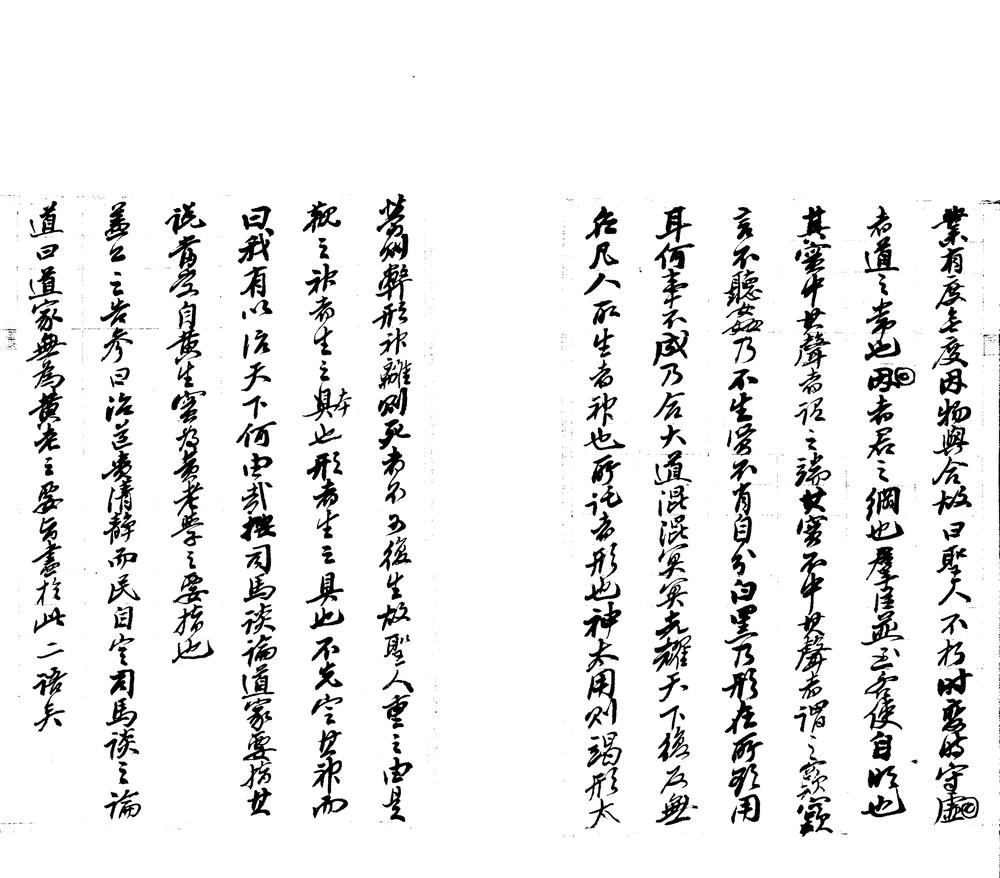 業有度無度因物與合故曰聖人不朽時變時守虛
者道之常也因者君之綱也羣臣並至各使自明也
其實中其聲者謂之端其實不中其聲者謂之窾窾
言不聽姦乃不生賢不肖自分白黑乃形在所欲用
耳何事不成乃合大道混混冥冥光耀天下復反無
名凡人所生者神也所託者形也神太用則竭形太
勞則弊形神離則死死者不可復生故聖人重之由是
觀之神者生之本也形者生之具也不先定其神而
曰我有以治天下何由哉按司馬談論道家要指其
說當出自黃生實為黃老學之要指也
蓋公之告參曰治道貴清靜而民自定司馬談之論
道曰道家無為黃老之要旨盡於此二語矣